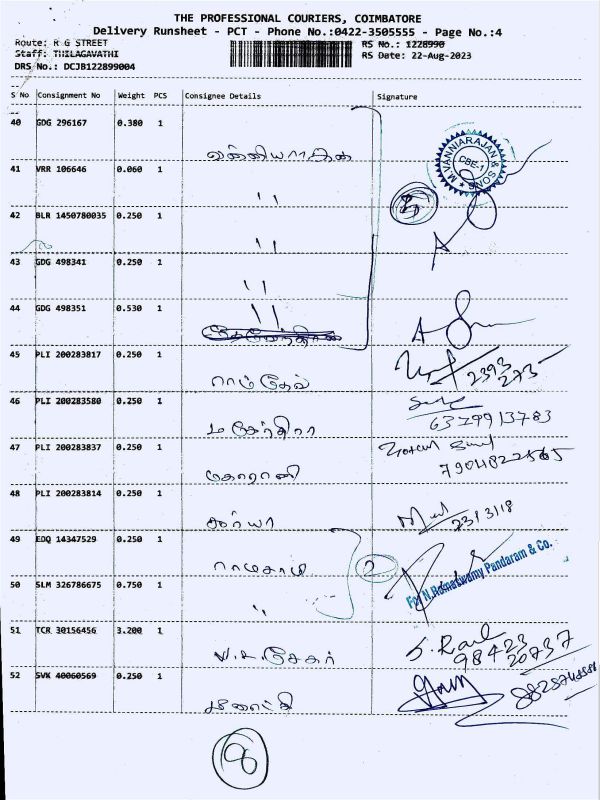 THE PROFESSIONAL COURIERS, COIMBATORE
Delivery Runsheet - PCT - Phone No.:0422-3505555 - Page No.:4
Route: R G STREET
RS No.: 1228990
Staff: THILAGAVATHI
RS Date: 22-Aug-2023
DRS No.: DCJB122899004
S No Consignment No Weight PCS Consignee Details Signature
40 GDG 296167 0.380 1
வன்னியராஜன்
M.VANNIARAJAN & SONS
CBE-1
41 VRR 106646 0.060 1
"
5
42 BLR 1450780035 0.250 1
"
43 GDG 498341 0.250 1
"
44 GDG 498351 0.530 1
"
45 PLI 200283817 0.250 1
ராம்தேவ்
2393
273
46 PLI 200283580 0.250 1
மகேந்திரா
6379913783
47 PLI 200283837 0.250 1
48 PLI 200283814 0.250 1
சூர்யா
2313118
49 EDQ 14347529 0.250 1
ராமசாமி
2
For N.Ramaswamy Pandaram & Co.
50 SLM 326786675 0.750 1
"
51 TCR 30156456 3.200 1
98423
20737
52 SVK 40060569 0.250 1
8